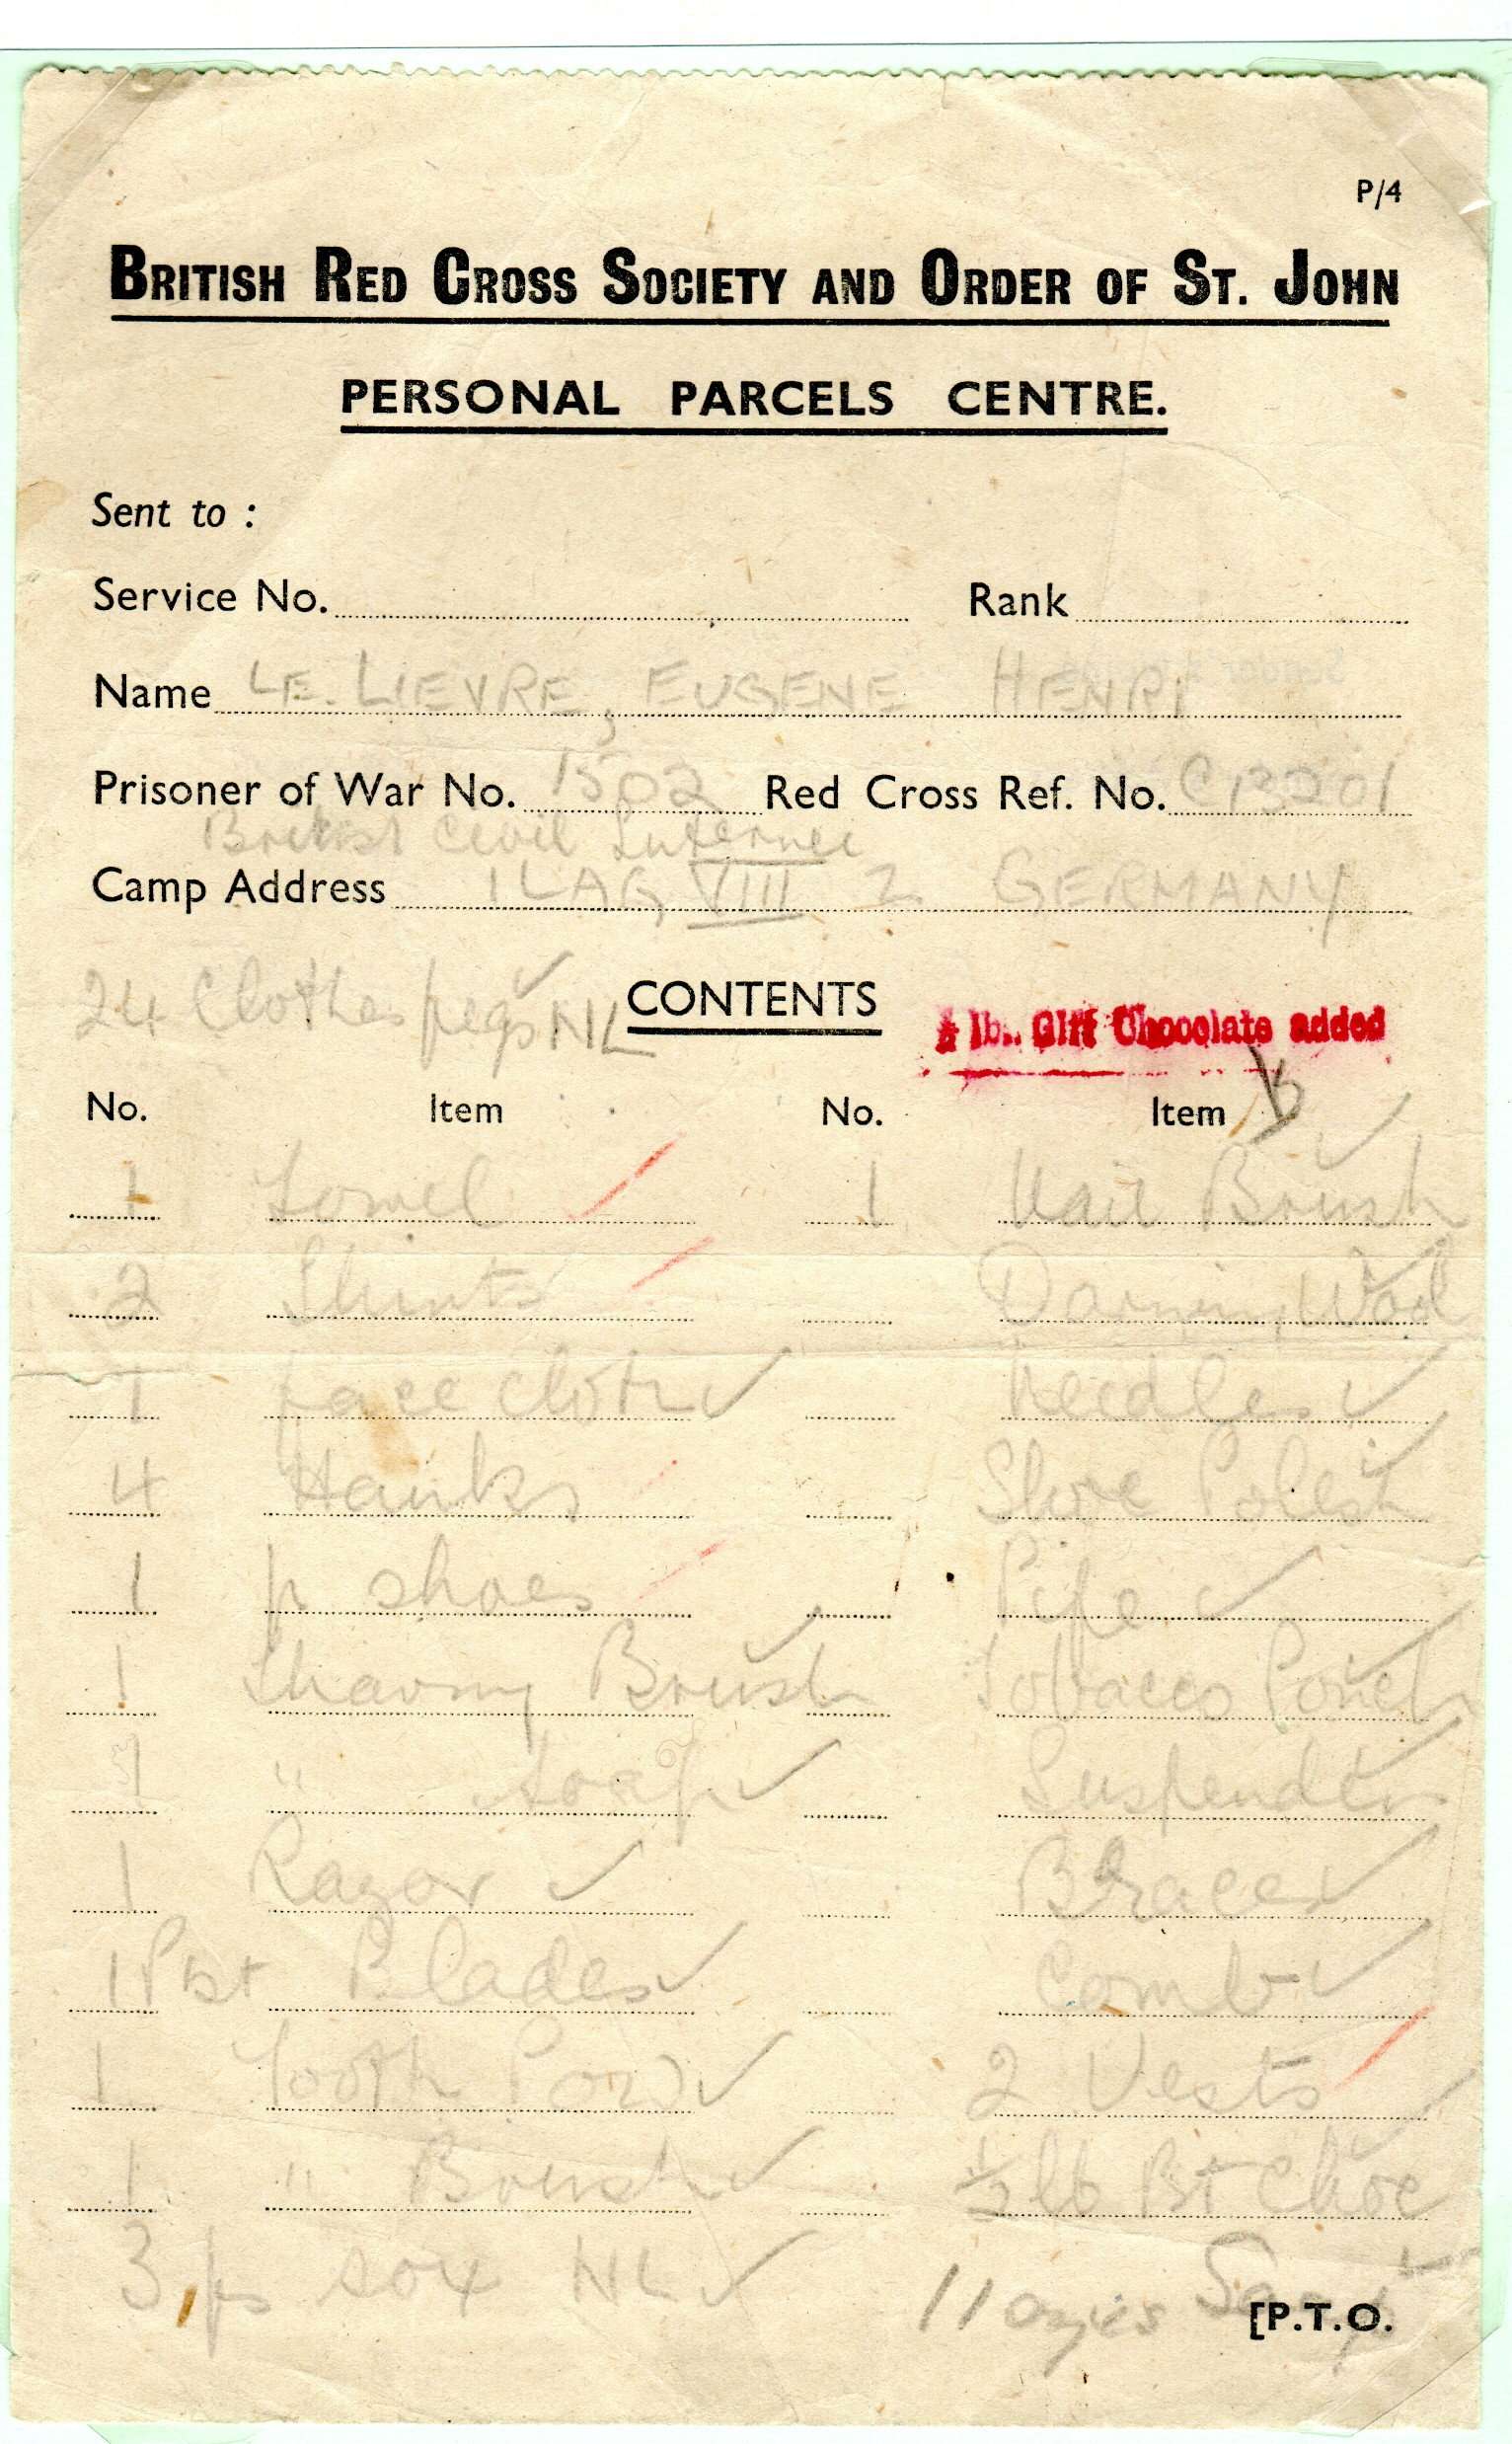 P/4
BRITISH RED CROSS SOCIETY AND ORDER OF ST. JOHN
PERSONAL PARCELS CENTRE.
Sent to :
Service No. Rank
Name LE. LIEVRE, EUGENE HENRI
Prisoner of War No. 1502 Red Cross Ref. No. C13201
British Civil Internee
Camp Address ILAG VIII Z GERMANY
24 Clothes pegs NL CONTENTS
lb. Gift Chocolate added
No. Item No. Item
1 Towel 1 Nail Brush
2 Shirts Darning Wool
1 face cloth Needles
4 Hanks Shoe Polish
1 p shoes Pipe
1 Shaving Brush Tobacco Pouch
1 " soap Suspenders
1 Razor Braces
1 Pkt Blades Comb
1 Tooth Pow 2 Vests
1 " Brush 1/2 lb Pt Choc
3 ps sox NL 11 ozies Soap
[P.T.O.